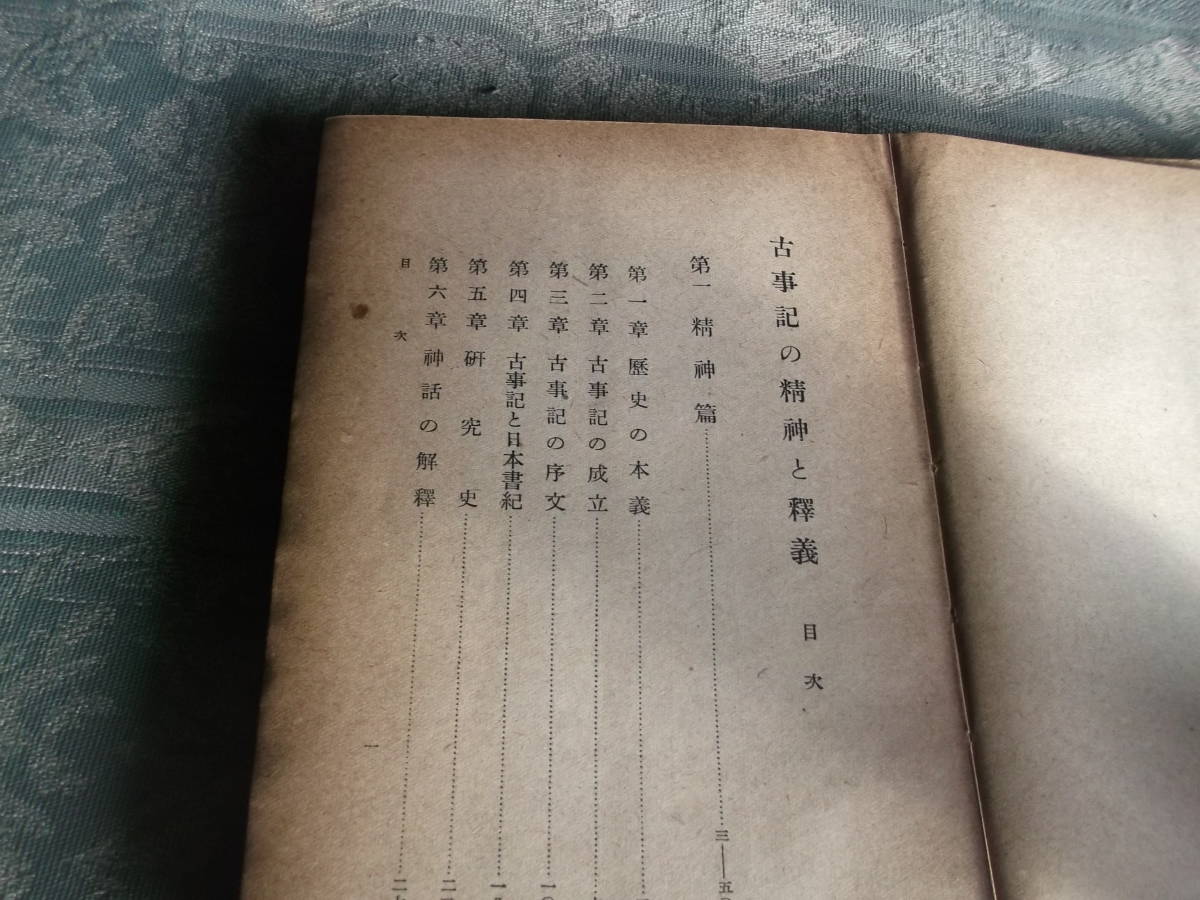 古事記の精神と釋義 目次
第一 精神篇……三―五
第一章 歷史の本義……
第二章 古事記の成立……
第三章 古事記の序文……一〇
第四章 古事記と日本書紀……一
第五章 硏究史……二
第六章 神話の解釋……二
目次
一